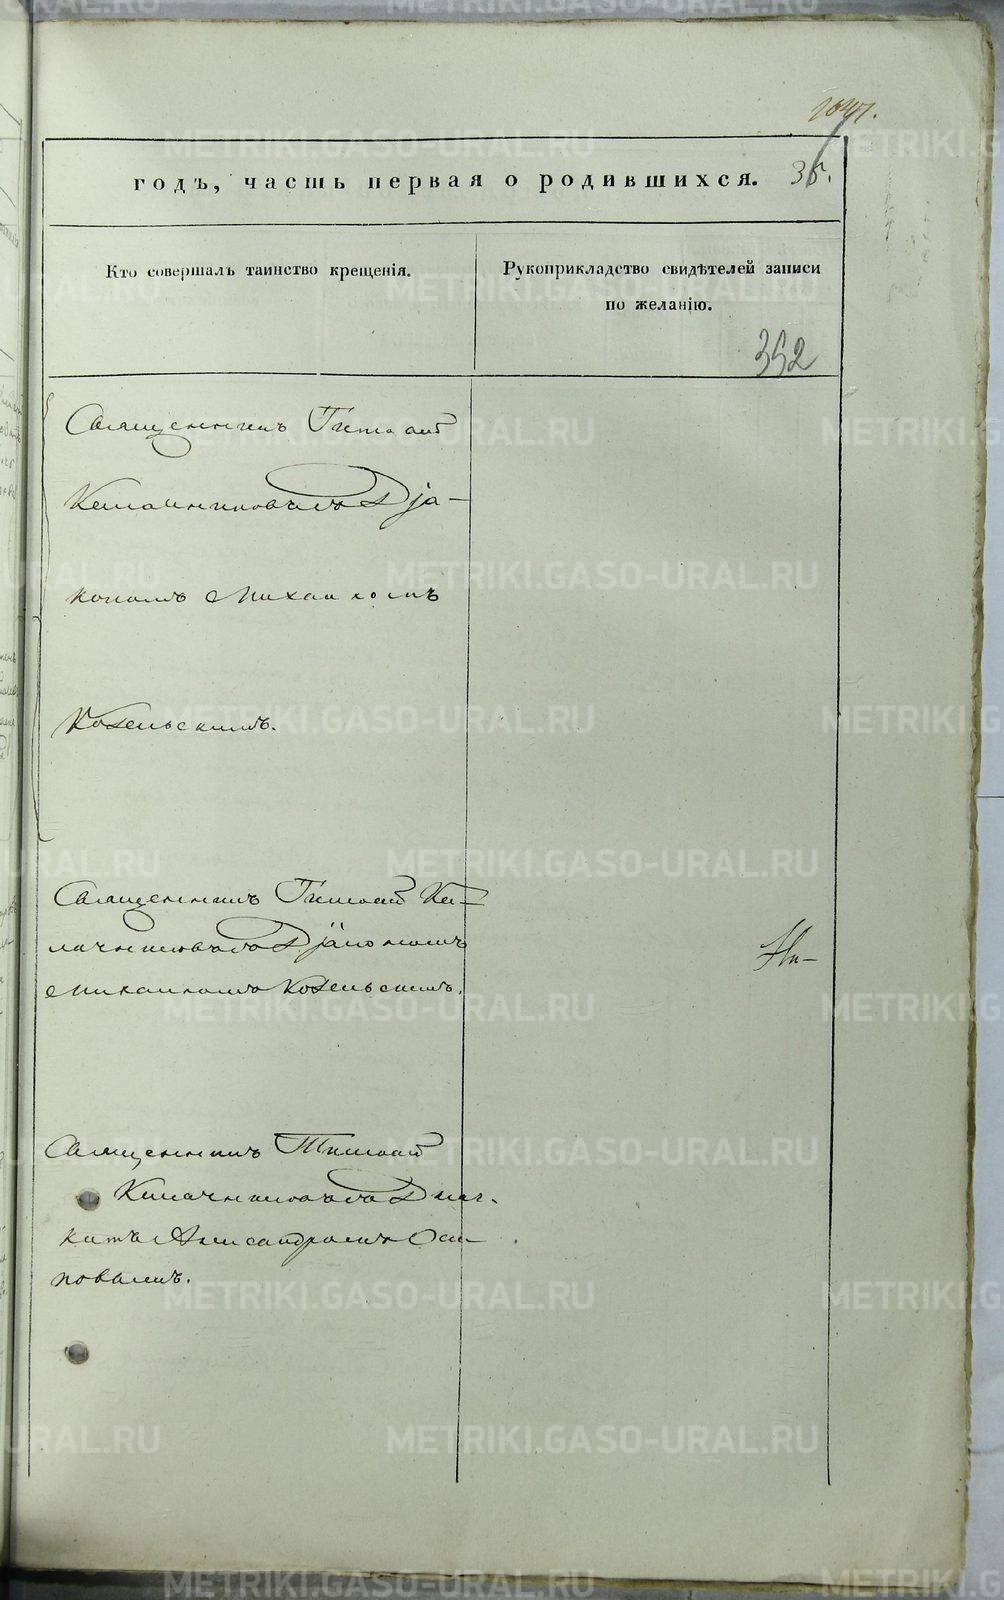 1047.
годъ, часть первая о родившихся. 35.
Кто совершалъ таинство крещенія.
Рукоприкладство свидѣтелей записи
по желанію.
352
Священникъ
Калачниковъ съ Дja-
кономъ Михаиломъ
Козельскимъ.
Священникъ Ка-
лачниковъ съ Дjakономъ
Михаиломъ Козельскимъ.
Священникъ
Калачниковъ съ Дьяч-
комъ Александромъ Оси-
повымъ.
METRIKI.GASO-URAL.RU